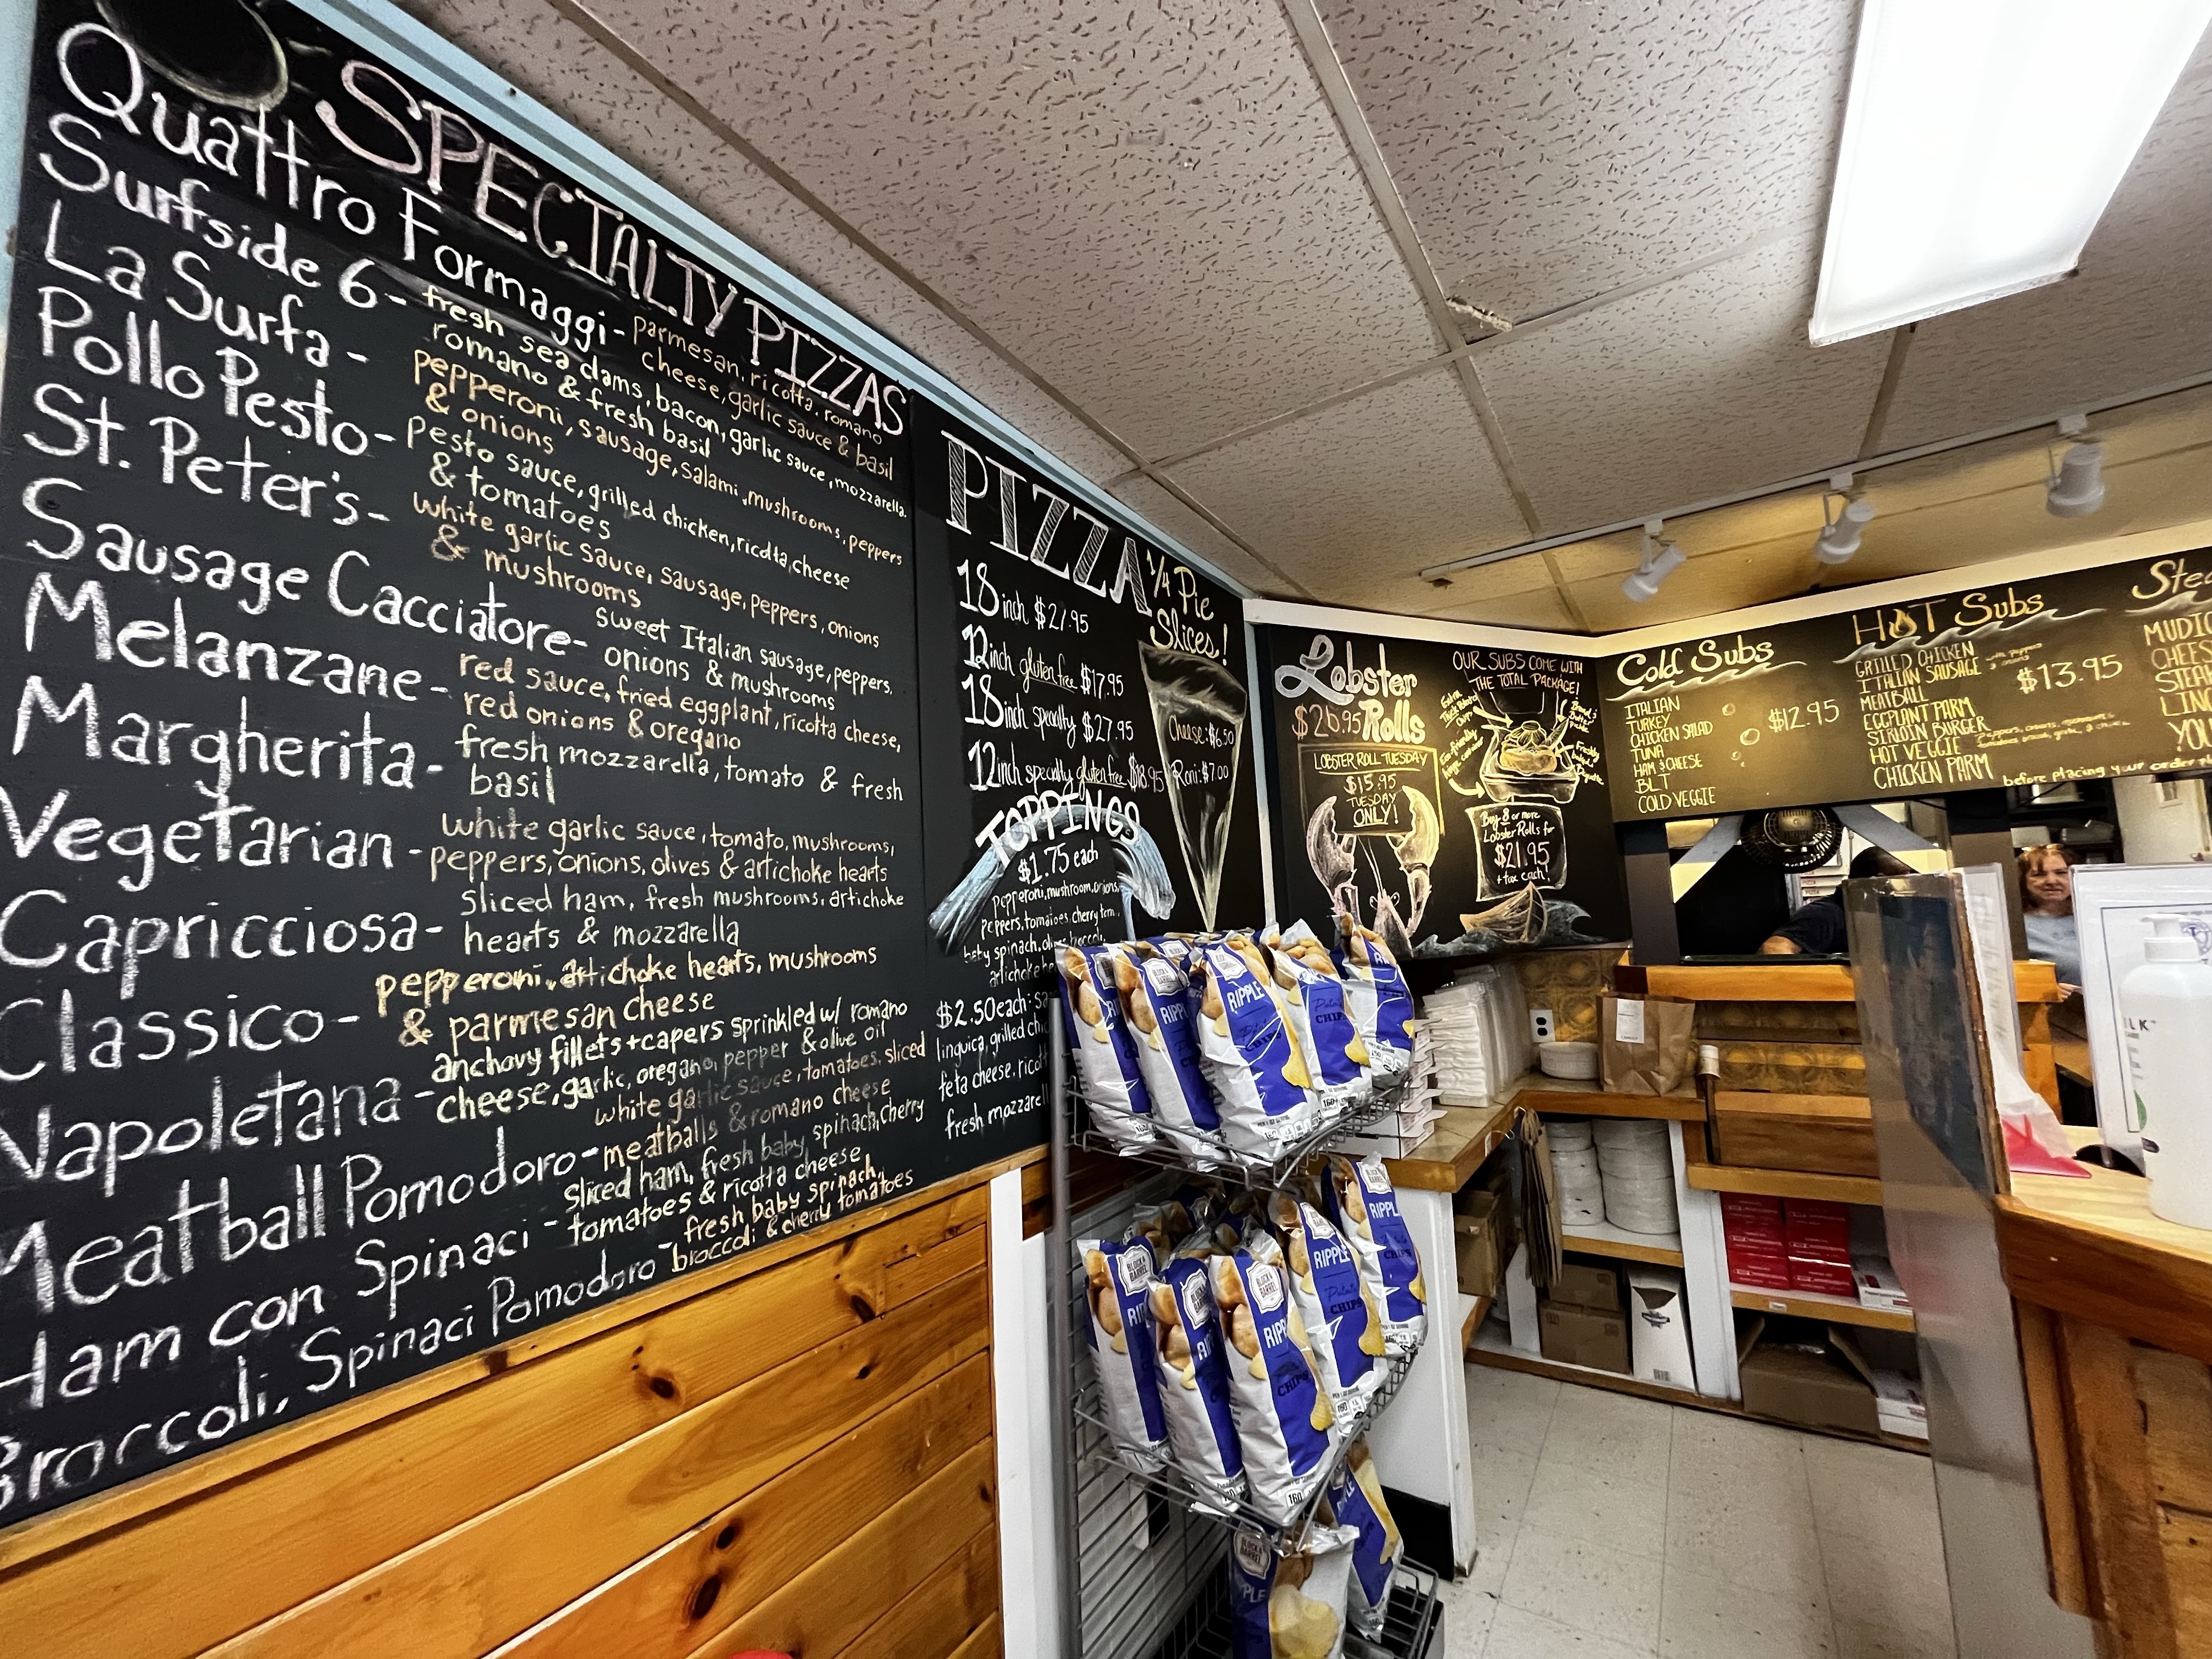 SPECIALTY PIZZAS
Quattro Formaggi - parmesan, ricotta, romano
cheese, garlic sauce & basil
Surfside 6 - fresh sea clams, bacon, garlic sauce, mozzarella,
romano & fresh basil
La Surfa - pepperoni, sausage, salami, mushrooms, peppers
& onions
Pollo Pesto - Pesto sauce, grilled chicken, ricotta cheese
& tomatoes
St. Peter's - white garlic sauce, sausage, peppers, onions
& mushrooms
Sausage Cacciatore - sweet Italian sausage, peppers,
onions & mushrooms
Melanzane - red sauce, fried eggplant, ricotta cheese,
red onions & oregano
Margherita - fresh mozzarella, tomato & fresh
basil
Vegetarian - white garlic sauce, tomato, mushrooms,
peppers, onions, olives & artichoke hearts
Capricciosa - sliced ham, fresh mushrooms, artichoke
hearts & mozzarella
Classico - pepperoni, artichoke hearts, mushrooms
& parmesan cheese
Napoletana - anchovy fillets + capers sprinkled w/ romano
cheese, garlic, oregano, pepper & olive oil
Meatball Pomodoro - white garlic sauce, tomatoes, sliced
meatballs & romano cheese
Ham con Spinaci - sliced ham, fresh baby spinach, cherry
tomatoes & ricotta cheese
Broccoli, Spinaci Pomodoro - fresh baby spinach,
broccoli & cherry tomatoes
PIZZA
18 inch $21.95
12 inch gluten free $17.95
18 inch specialty $27.95
12 inch specialty gluten free $18.95
1/4 Pie
Slices!
Cheese: $6.50
Roni: $7.00
TOPPINGS
$1.75 each
pepperoni, mushroom, onions,
peppers, tomatoes, cherry tom.,
baby spinach, olives, broccoli,
artichoke
$2.50 each:
linguica, grilled
feta cheese,
fresh
Lobster
Rolls
$26.95
LOBSTER ROLL TUESDAY
$15.95
TUESDAY
ONLY!
OUR SUBS COME WITH
THE TOTAL PACKAGE!
Buy 8 or more
Lobster Rolls for
$21.95
+ tax each!
Cold Subs
ITALIAN
TURKEY
CHICKEN SALAD
TUNA
HAM & CHEESE
BLT
COLD VEGGIE
$12.95
HOT Subs
GRILLED CHICKEN
ITALIAN SAUSAGE with peppers & onions
MEATBALL
EGGPLANT PARM
SIRLOIN BURGER
HOT VEGGIE
CHICKEN PARM
$13.95
before placing your order
BLOCK & BARREL
RIPPLE
Potato
CHIPS
160